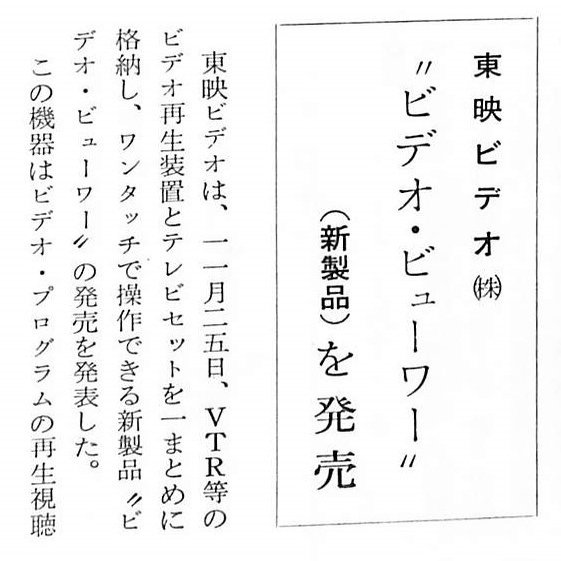 東映ビデオ㈱
〝ビデオ・ビューワー〟
(新製品)を発売
東映ビデオは、一一月二五日、VTR等の
ビデオ再生装置とテレビセットを一まとめに
格納し、ワンタッチで操作できる新製品〝ビ
デオ・ビューワー〟の発売を発表した。
この機器はビデオ・プログラムの再生視聴